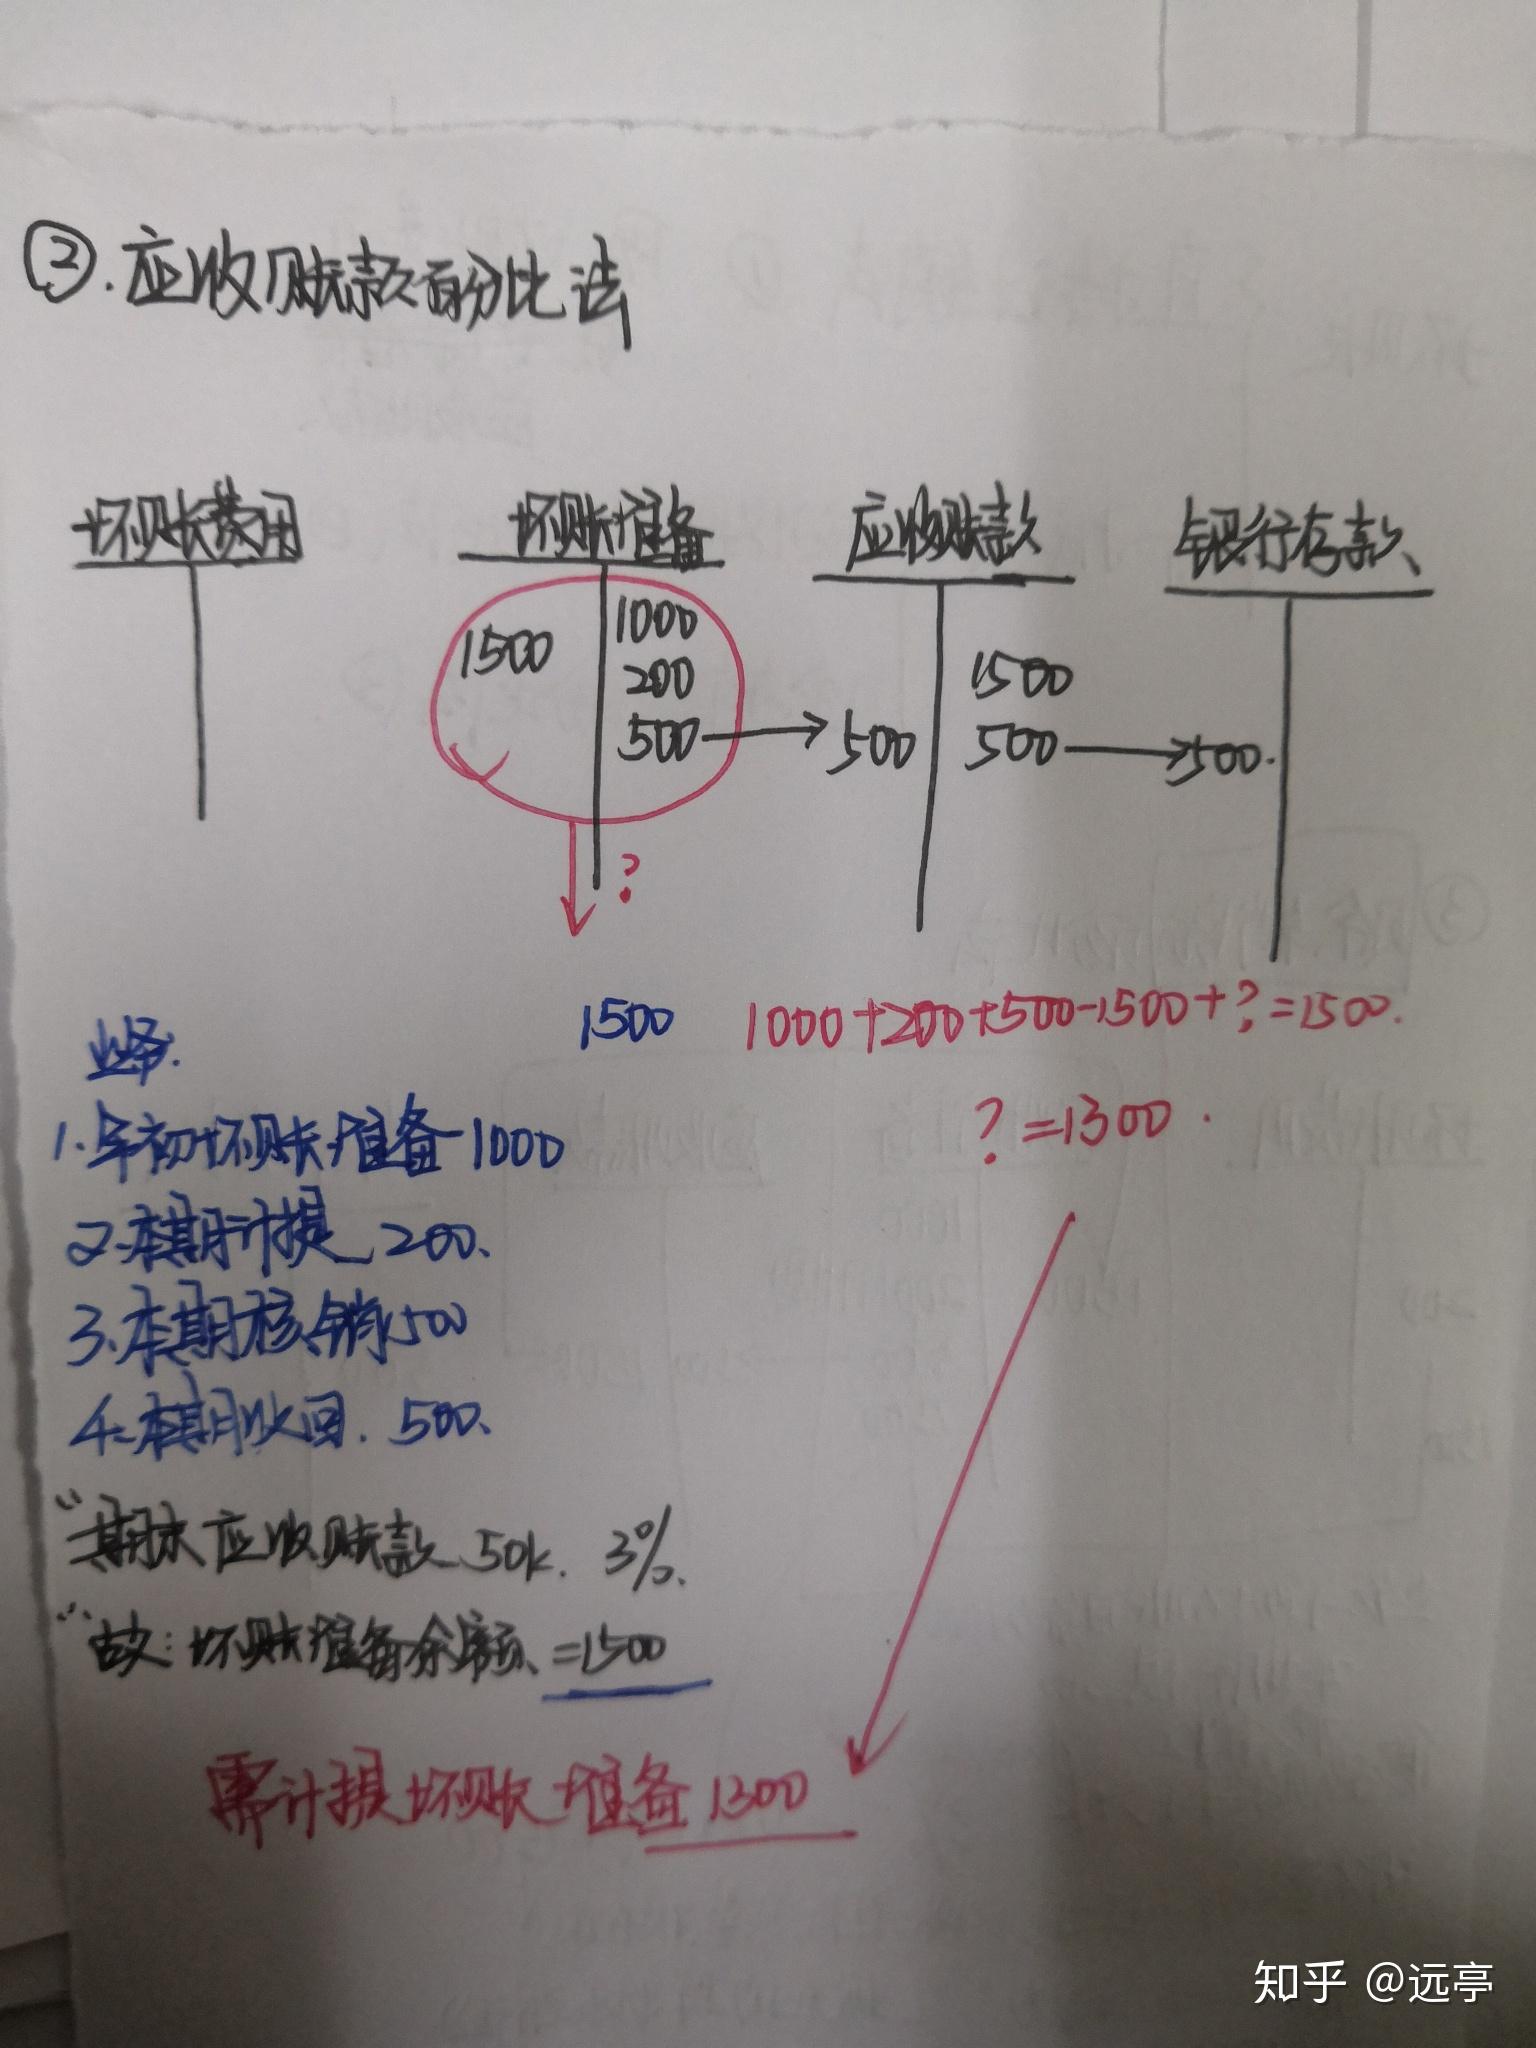 ②.应收账款百分比法
坏账费用 坏账准备 应收账款 银行存款
1500 1000 1500
200
500 500 500 500.
?
1500 1000+200+500-1500+?=1500.
?=1300.
业务.
1.年初坏账准备1000
2.本期计提 200.
3.本期核销1500
4.本期收回. 500.
"期末应收账款 50k. 3%.
"故:坏账准备余额=1500
需计提坏账准备1300
知乎 @远亭